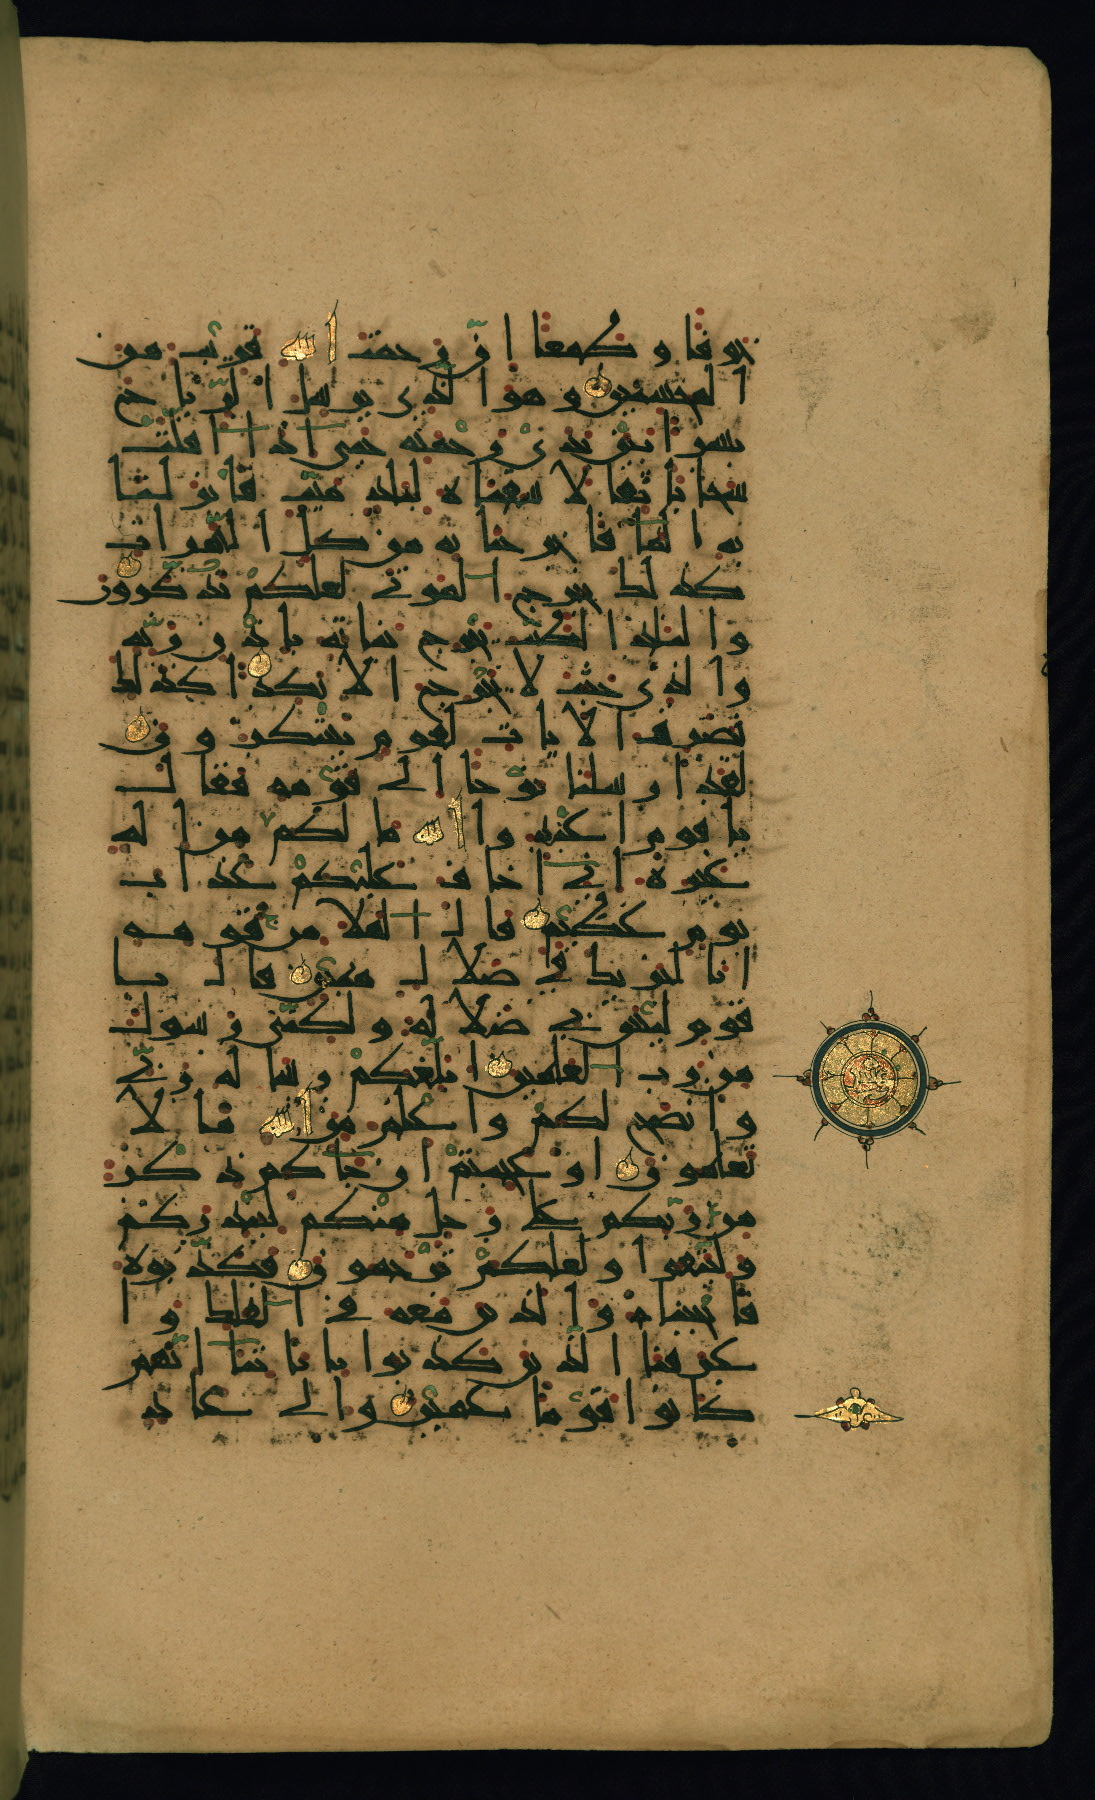 خوفا وطمعا ان رحمت الله قريب من
المحسنين وهو الذي يرسل الرياح
بشرا بين يدي رحمته حتى اذا اقلت
سحابا ثقالا سقناه لبلد ميت فانزلنا
به الما فاخرجنا به من كل الثمرات
كذلك نخرج الموتى لعلكم تذكرون
والبلد الطيب يخرج نباته باذن ربه
والذي خبث لا يخرج الا نكدا كذلك
نصرف الايات لقوم يشكرون
لقد ارسلنا نوحا الى قومه فقال
يا قوم اعبدوا الله ما لكم من اله
غيره اني اخاف عليكم عذاب
يوم عظيم قال الملا من قومه
انا لنريك في ضلال مبين قال يا
قوم ليس بي ضلالة ولكني رسول
من رب العلمين ابلغكم رسالة ربي
وانصح لكم واعلم من الله ما لا
تعلمون اوعجبتم ان جاكم ذكر
من ربكم على رجل منكم لينذركم
ولتتقوا ولعلكم ترحمون فكذبوه
فانجيناه والذين معه في الفلك وا
غرقنا الذين كذبوا باياتنا انهم
كانوا قوما عمين والى عاد